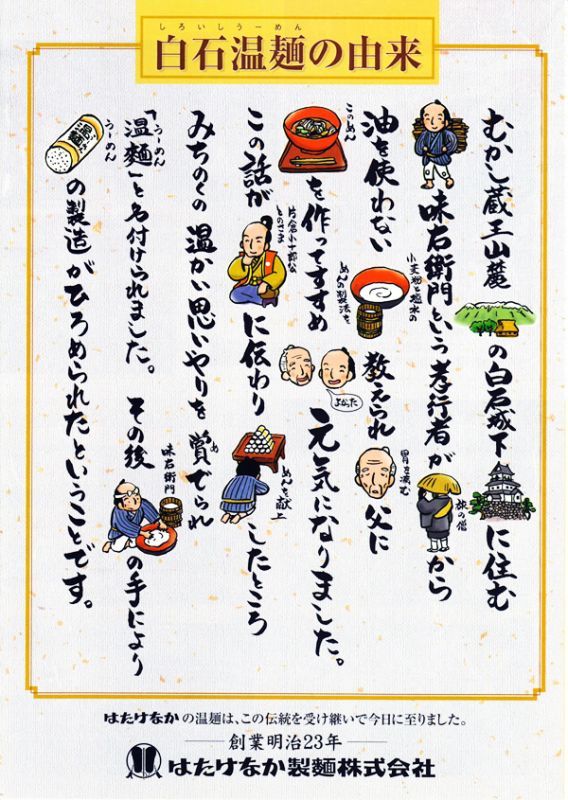 しろいしうーめん
白石温麺の由来
むかし蔵王山麓の白石城下に住む
味右衛門という孝行者が旅の僧から
油を使わない小麦粉と塩水のめんの製法を教えられ胃を病む父に
このめんを作ってすすめよかった元気になりました。
この話が片倉小十郎公とのさまに伝わりめんを献上したところ
みちのくの温かい思いやりを賞でられ
「温麺」と名付けられました。その後味右衛門の手により
うーめんの製造がひろめられたということです。
はたけなかの温麺は、この伝統を受け継いで今日に至りました。
創業明治23年
はたけなか製麺株式会社